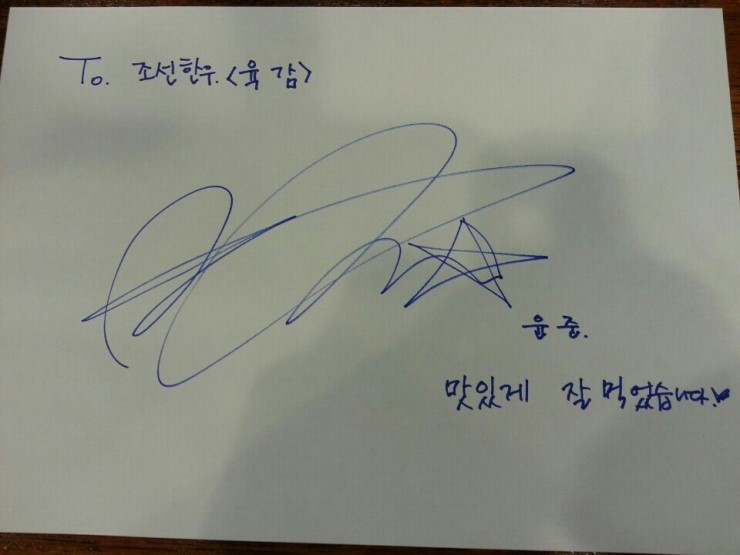 To. 조선한우.<육감>
윤준.
맛있게 잘 먹었습니다!♥